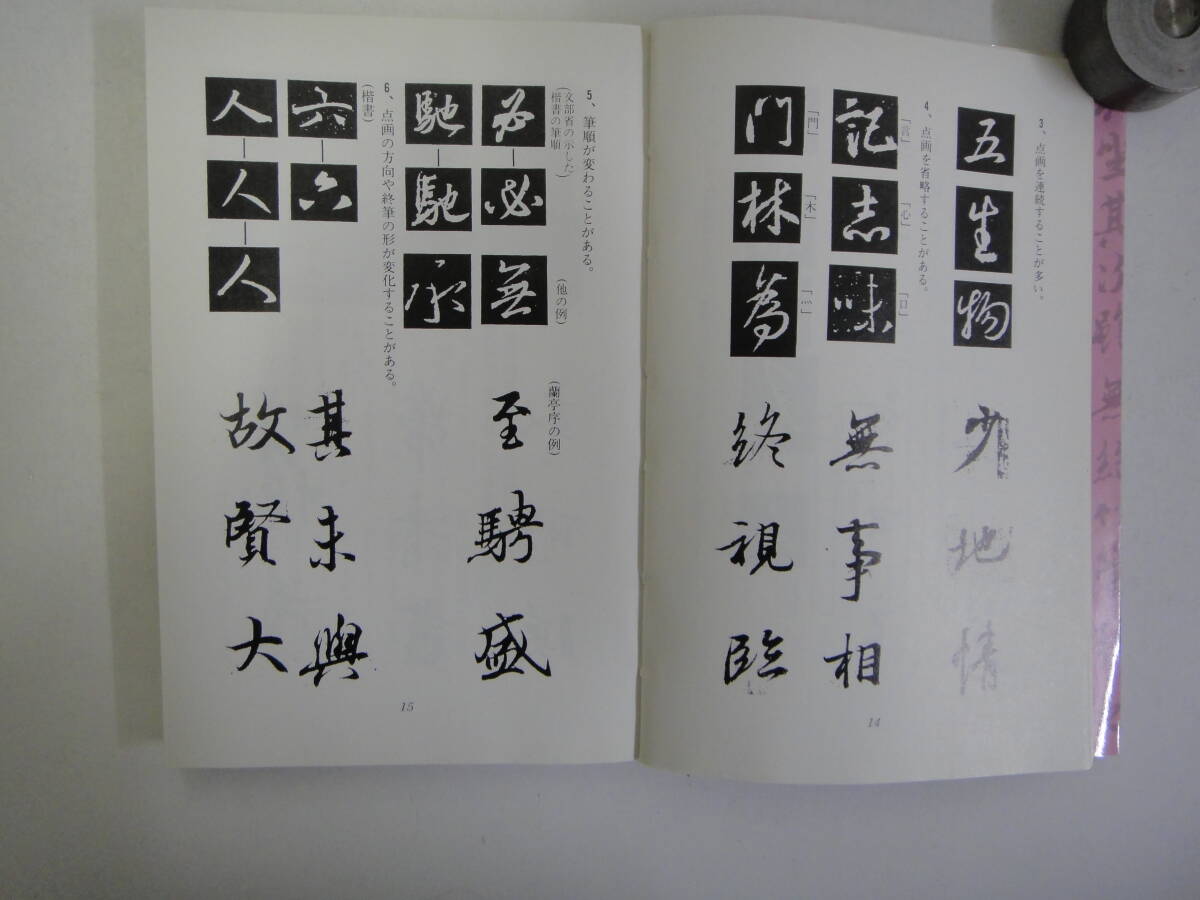 3、点画を連続することが多い。
五生物
少地情
4、点画を省略することがある。
「言」
「心」
「口」
記志味
無事相
「門」
「木」
「灬」
門林為
終視臨
14
5、筆順が変わることがある。
(文部省の示した
楷書の筆順)
(他の例)
(蘭亭序の例)
必―必無
至騁盛
馳―馳承
6、点画の方向や終筆の形が変化することがある。
(楷書)
六―六
其未興
人―人―人
故賢大
15